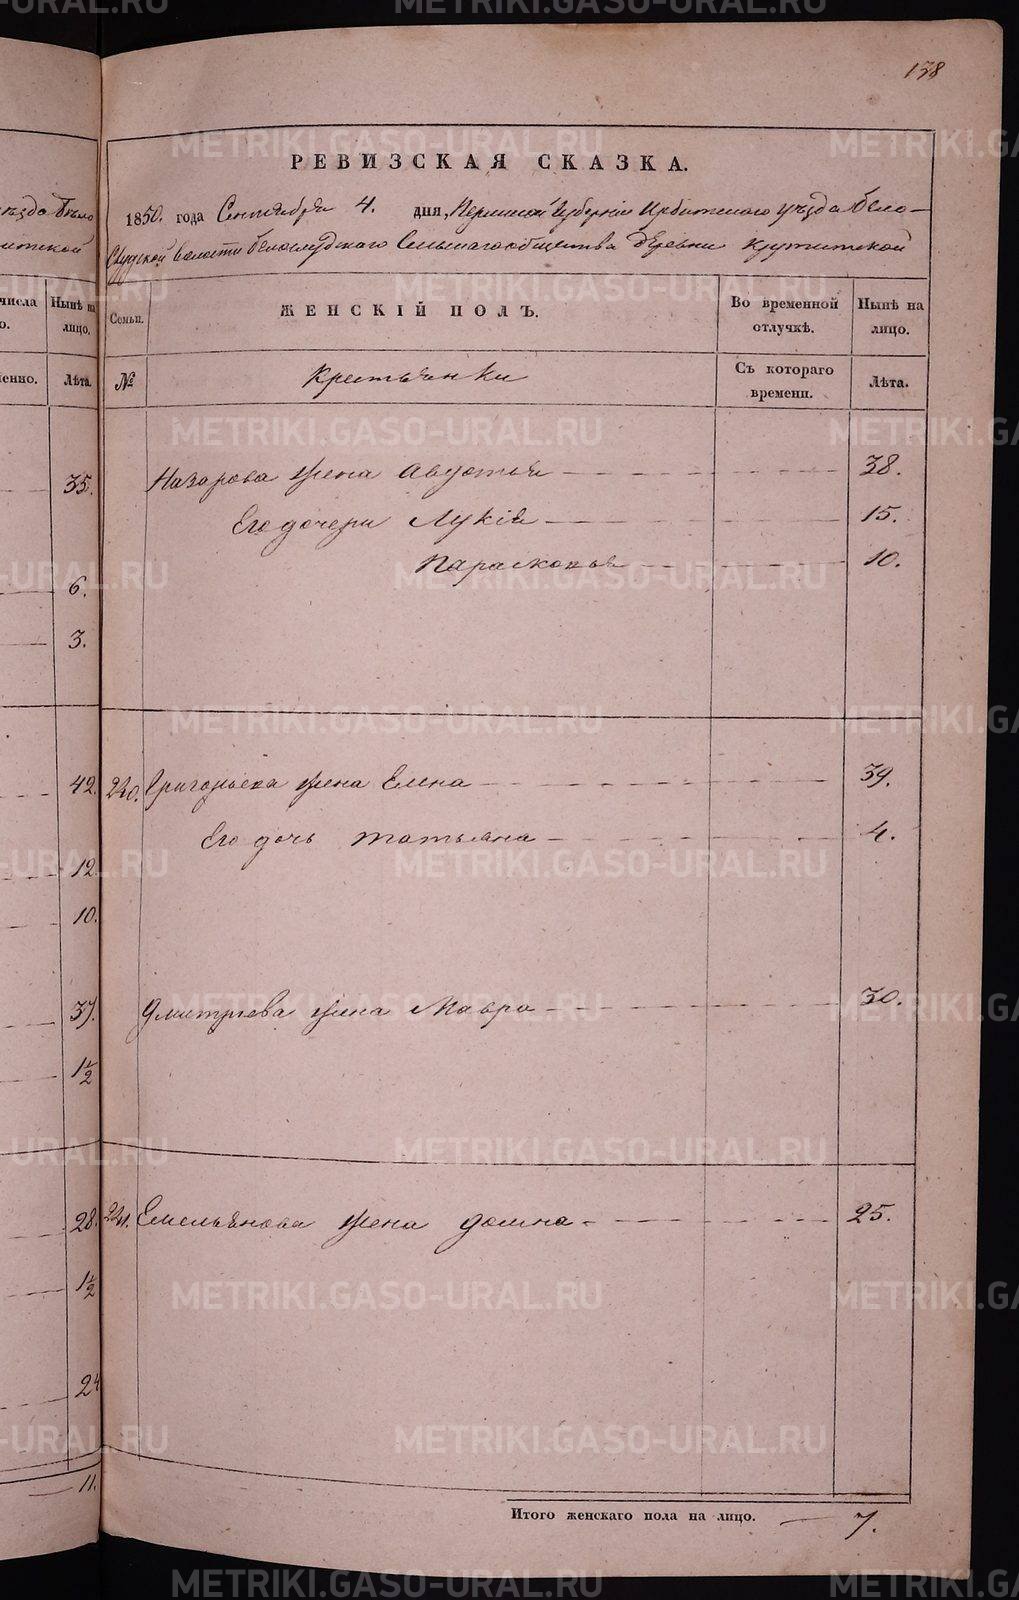 138
РЕВИЗСКАЯ СКАЗКА.
1850. года Сентября 4. дня, Пермской Губерніи Ирбитскаго уѣзда Бело-
слудской волости Белослудскаго Сельскаго общества деревни Крутитской
Семьи. ЖЕНСКІЙ ПОЛЪ. Во временной отлучкѣ. Нынѣ на лицо.
№ Крестьянки Съ котораго времени. Лѣта.
Назарова жена Авдотья 38.
Его дочери Лукія 15.
Парасковья 10.
240. Григорьева жена Елена 39.
Его дочь Татьяна 4.
Дмитріева жена Мавра 30.
241. Емельянова жена Домна 25.
Итого женскаго пола на лицо. 7.
числа Нынѣ на лицо.
Лѣта.
35.
6.
3.
42.
12
10.
37.
1½
28.
1½
24
11.
METRIKI.GASO-URAL.RU